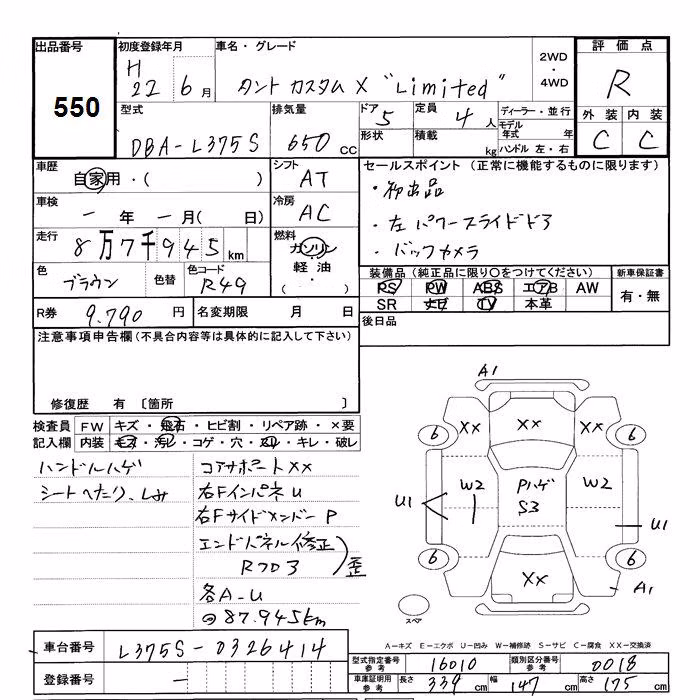 出品番号
550
初度登録年月
H
22 6月
車名・グレード
タント カスタム X "Limited"
2WD
・
4WD
評価点
R
外装 内装
C C
型式
DBA-L375S
排気量
650 CC
ドア 5
定員 4人
形状
積載 kg
ディーラー・並行
モデル年式 年
ハンドル 左・右
車歴
自家用・( )
シフト
AT
車検
ー年 ー月( 日)
冷房
AC
走行
8万7千945km
燃料
ガソリン
軽油
( ・ )
色
ブラウン
色替
色コード
R49
R券 9.790円
名変期限 月 日
セールスポイント (正常に機能するものに限ります)
・初出品
・左パワースライドドア
・バックカメラ
装備品 (純正品に限り○をつけてください)
PS PW ABS エアB AW
SR ナビ TV 本革
新車保証書
有・無
後日品
注意事項申告欄(不具合内容等は具体的に記入して下さい)
修復歴 有 〔箇所 〕
検査員 記入欄
FW キズ・飛石・ヒビ割・リペア跡・×要
内装 キズ・汚レ・コゲ・穴・スレ・キレ・破レ
ハンドルハゲ
シートへたり、しみ
コアサポートXX
右Fインパネ U
右Fサイドメンバー P
エンドパネル修正
Rフロア
歪
各A-U
87.945km
A1
6 XX XX XX 6
U1 W2 Pハゲ W2
S3
U1
6 XX 6
A1
スペア
A-キズ E-エクボ U-凹み W-補修跡 S-サビ C-腐食 XX-交換済
車台番号
L375S-0326414
登録番号
ー
型式指定番号 参考 16010
類別区分番号 参考 0018
車庫証明用 参考 長さ 339cm 幅 147cm 高さ 175cm